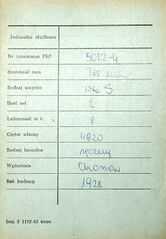 Jednostka służbowa
Nr inwentarzowy PKP 5012-4
Szerokość toru
Rodzaj wagonu 5
Ilość osi 2
Ładowność w t. 8
Ciężar własny 4820
Rodzaj hamulca ręczny
Wytwórnia Chrzanów
Rok budowy 1928